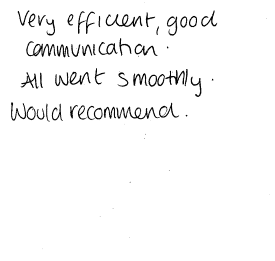 Very efficient, good
communication.
All went smoothly.
Would recommend.